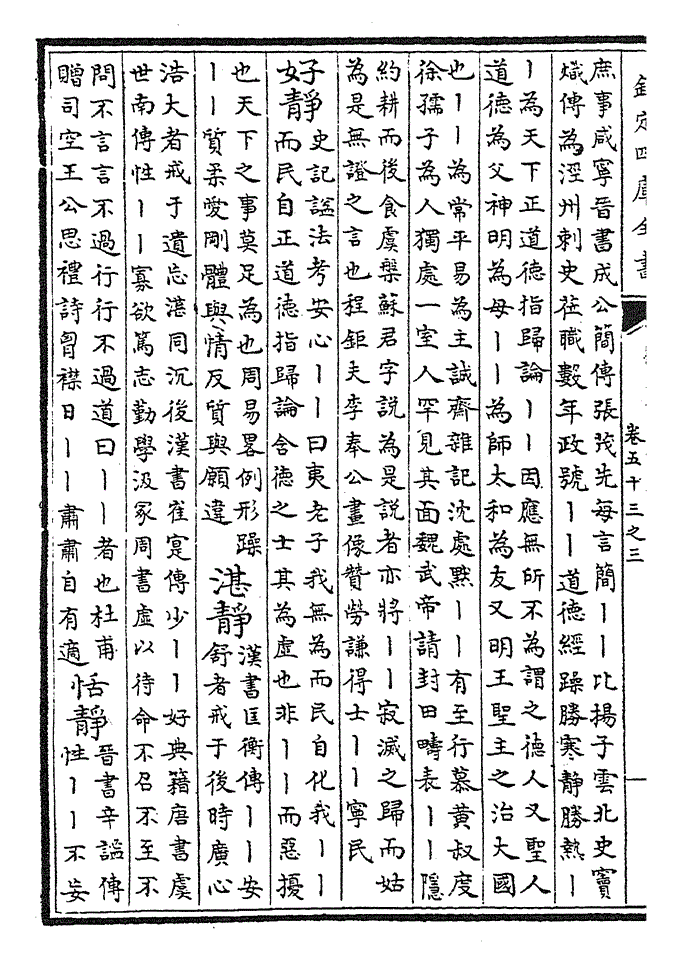 欽定四庫全書
卷五十三之三
庶事咸寧晉書成公簡傳張茂先每言簡丨丨比揚子雲北史竇
熾傳為涇州刺史莅職數年政號丨丨道德經躁勝寒靜勝熱丨
丨為天下正道德指歸論丨丨因應無所不為謂之德人又聖人
道德為父神明為母丨丨為師太和為友又明王聖主之治大國
也丨丨為常平易為主誠齋雜記沈處默丨丨有至行慕黃叔度
徐孺子為人獨處一室人罕見其面魏武帝請封田疇表丨丨隱
約耕而後食虞槃蘇君字說為是說者亦將丨丨寂滅之歸而姑
為是無證之言也程鉅夫李奉公畫像贊勞謙得士丨丨寧民
好靜
史記諡法考安心丨丨曰夷老子我無為而民自化我丨丨
而民自正道德指歸論含德之士其為虛也非丨丨而惡擾
也天下之事莫足為也周易畧例形躁
丨丨質柔愛剛體與情反質與願違
湛靜
漢書匡衡傳丨丨安
舒者戒于後時廣心
浩大者戒于遺忘湛同沉後漢書崔寔傳少丨丨好典籍唐書虞
世南傳性丨丨寡欲篤志勤學汲冢周書虛以待命不召不至不
問不言言不過行行不過道曰丨丨者也杜甫
贈司空王公思禮詩胷襟日丨丨肅肅自有適
恬靜
晉書辛謐傳
性丨丨不妄